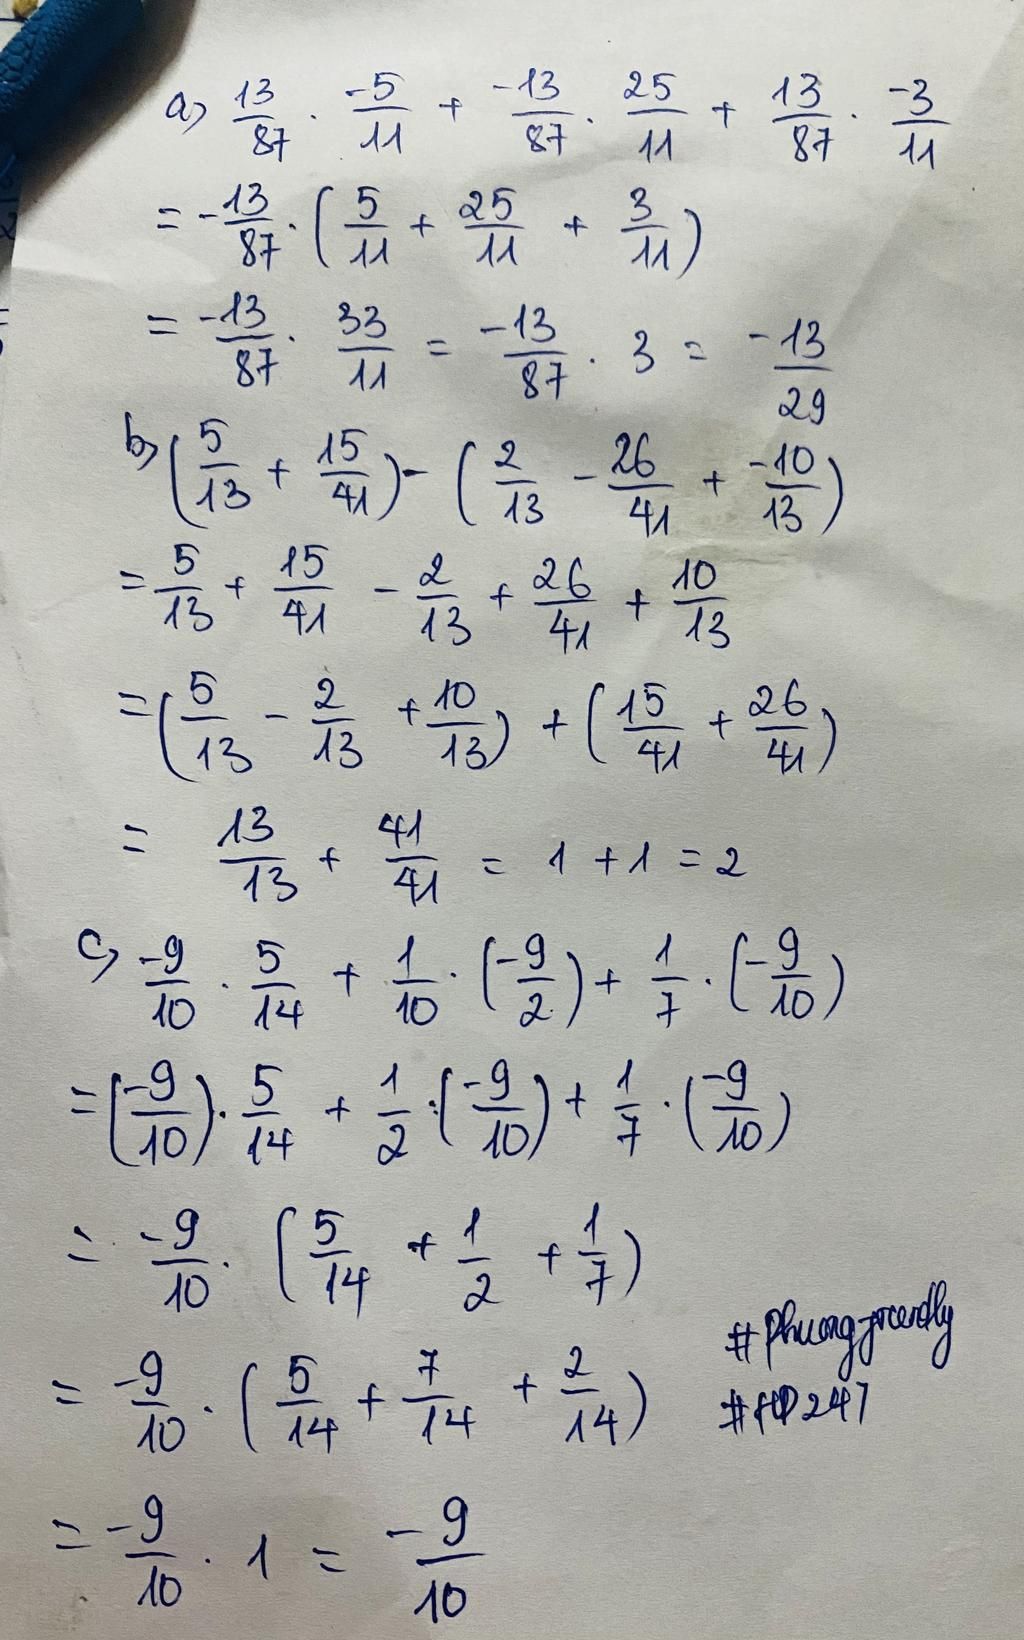 a) 13/87 . -5/11 + -13/87 . 25/11 + 13/87 . -3/11
= -13/87 . (5/11 + 25/11 + 3/11)
= -13/87 . 33/11 = -13/87 . 3 = -13/29
b) (5/13 + 15/41) - (2/13 - 26/41 + -10/13)
= 5/13 + 15/41 - 2/13 + 26/41 + 10/13
= (5/13 - 2/13 + 10/13) + (15/41 + 26/41)
= 13/13 + 41/41 = 1 + 1 = 2
c) -9/10 . 5/14 + 1/10 . (-9/2) + 1/7 . (-9/10)
= (-9/10) . 5/14 + 1/2 . (-9/10) + 1/7 . (-9/10)
= -9/10 . (5/14 + 1/2 + 1/7)
= -9/10 . (5/14 + 7/14 + 2/14)
= -9/10 . 1 = -9/10